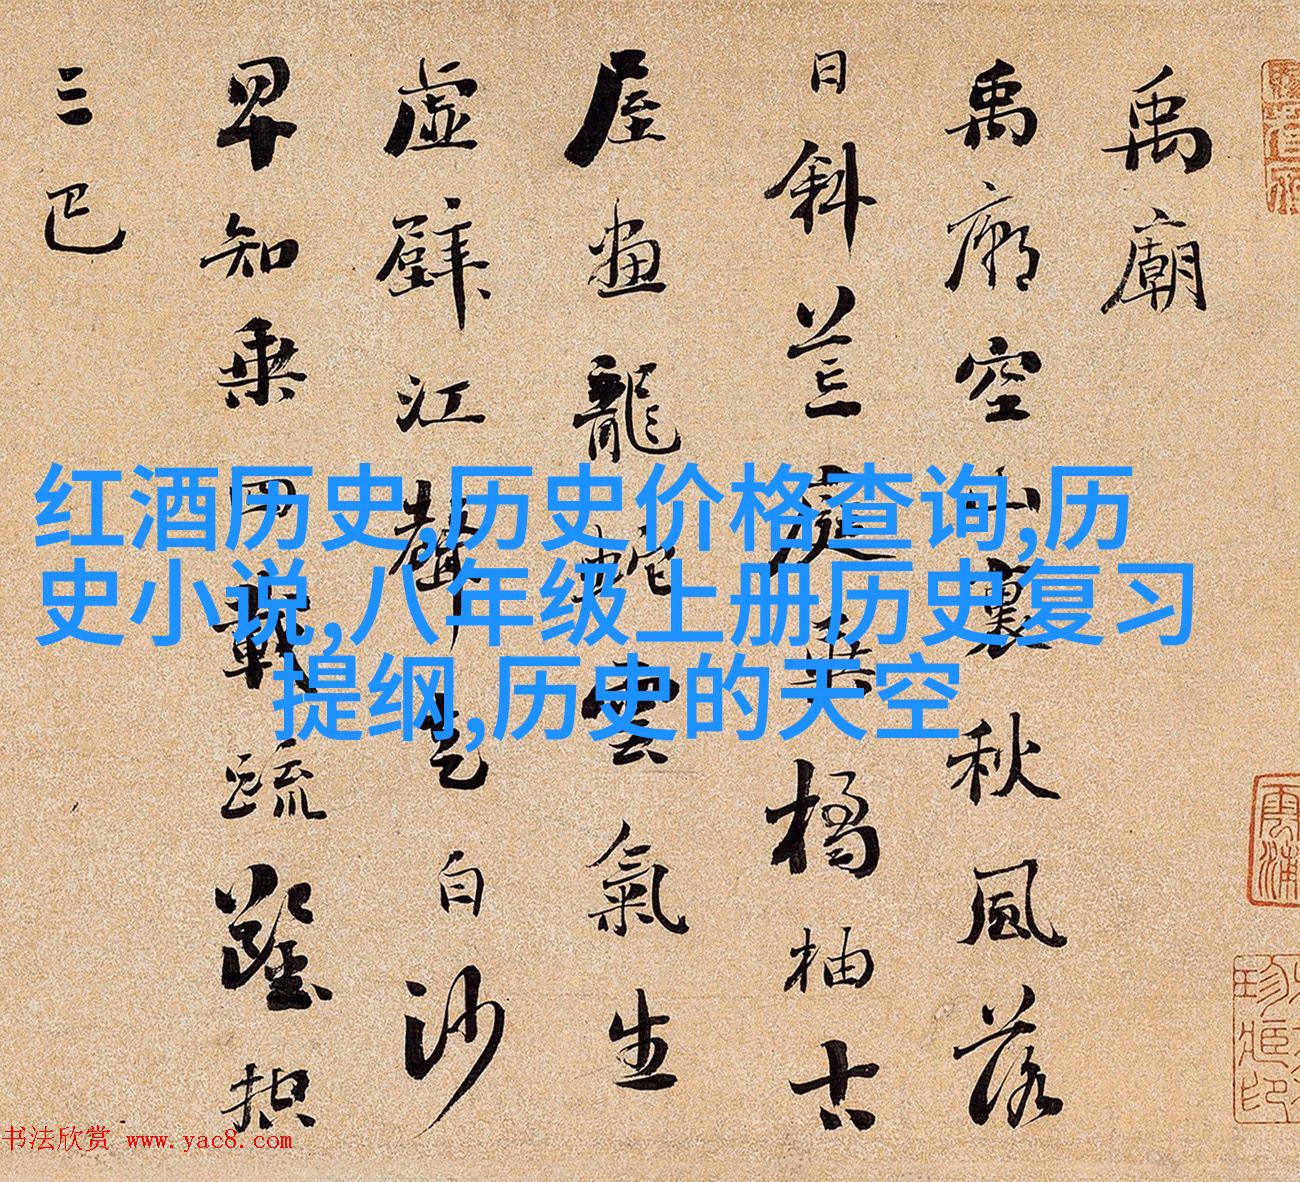 禹廟
禹廟空山裏秋風落
日斜荒庭垂橘柚古
屋畫龍蛇雲氣生
虛壁江聲走白沙
早知乘四載疏鑿控
三巴
红酒历史,历史价格查询,历
史小说,八年级上册历史复习
提纲,历史的天空
书法欣赏 www.yac8.com